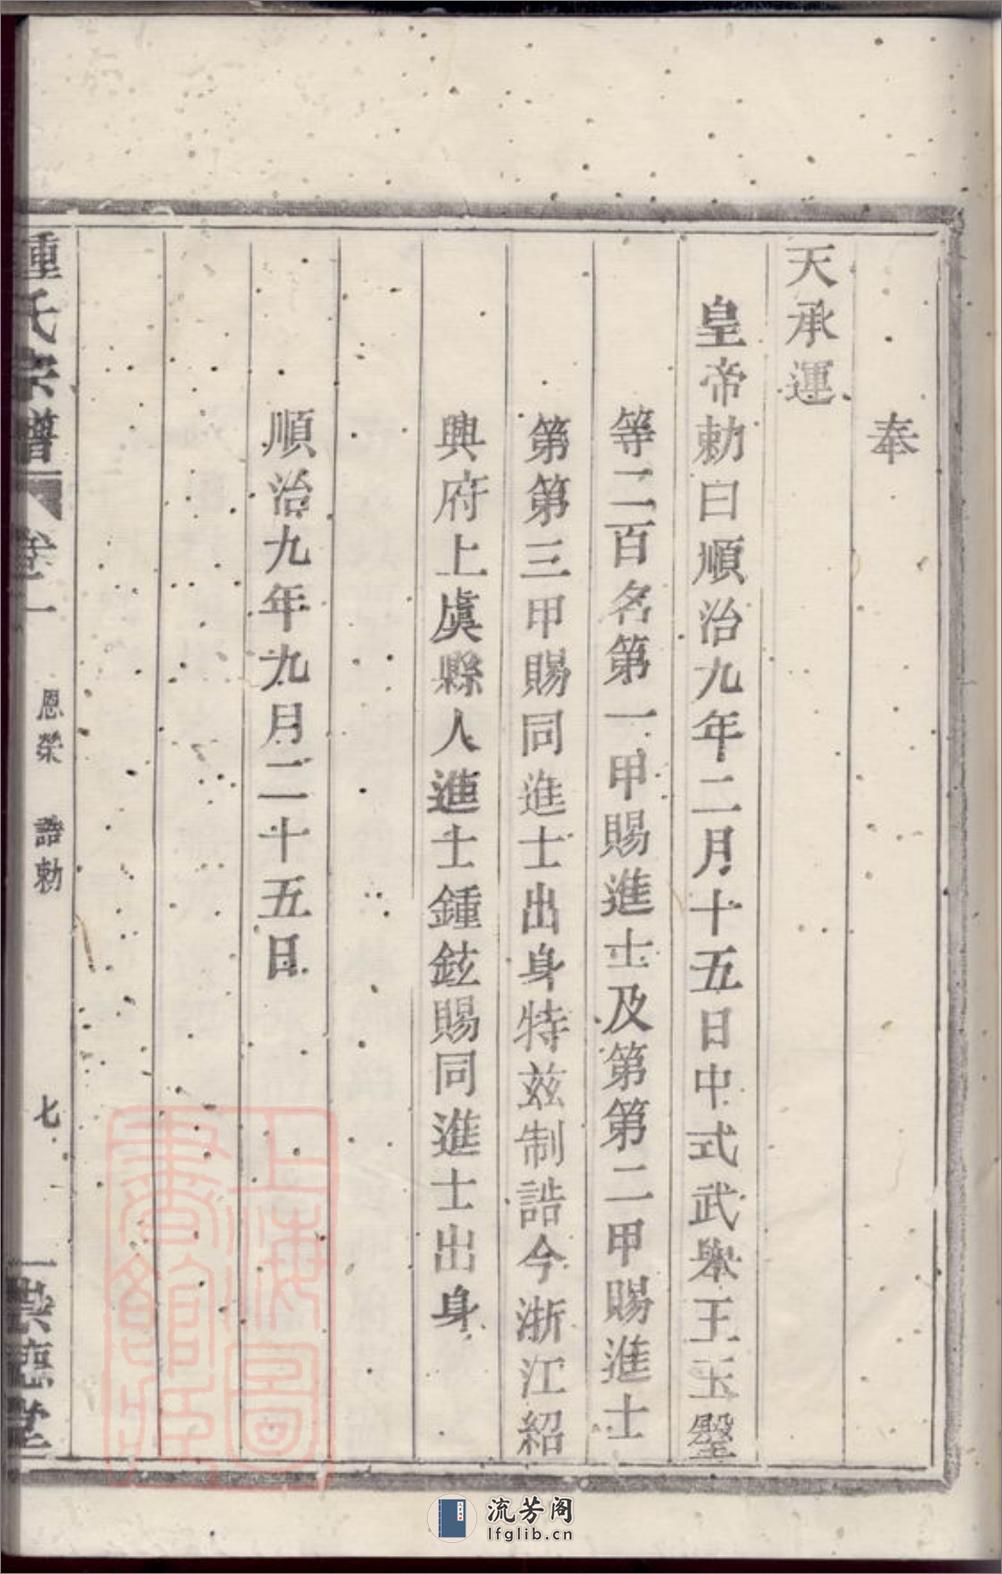 奉
天承運
皇帝勅曰順治九年二月十五日中式武舉王玉璧
等二百名第一甲賜進士及第第二甲賜進士
第第三甲賜同進士出身特玆制誥今浙江紹
興府上虞縣人進士鍾鉉賜同進士出身
順治九年九月二十五日
鍾氏宗譜
卷一
恩榮 誥勅
七
一
德堂
上海圖
書館藏
流芳阁
lfglib.cn